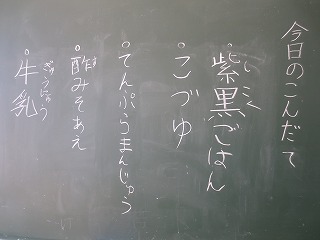 今日のこんだて
。紫黒ごはん
しこく
。こづゆ
。てんぷらまんじゅう
。酢みそあえ
す
。牛乳
ぎゅうにゅう